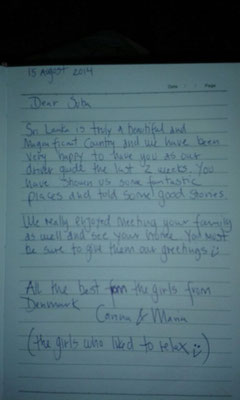 15 August 2014
Date / / Page
Dear
Sri Lanka is truly a beautiful and
Magnificent Country and we have been
very happy to have you as our
driver guide the last 2 weeks. You
have shown us some fantastic
places and told some good stories.
We really enjoyed meeting your family
as well and see your home. You must
be sure to give them our greetings :)
All the best from the girls from
Denmark
&
(the girls who liked to relax :))